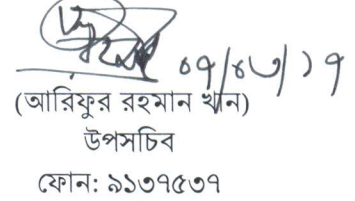 (আরিফুর রহমান খান)
উপসচিব
ফোন: ৯১৩৭৫৩৭